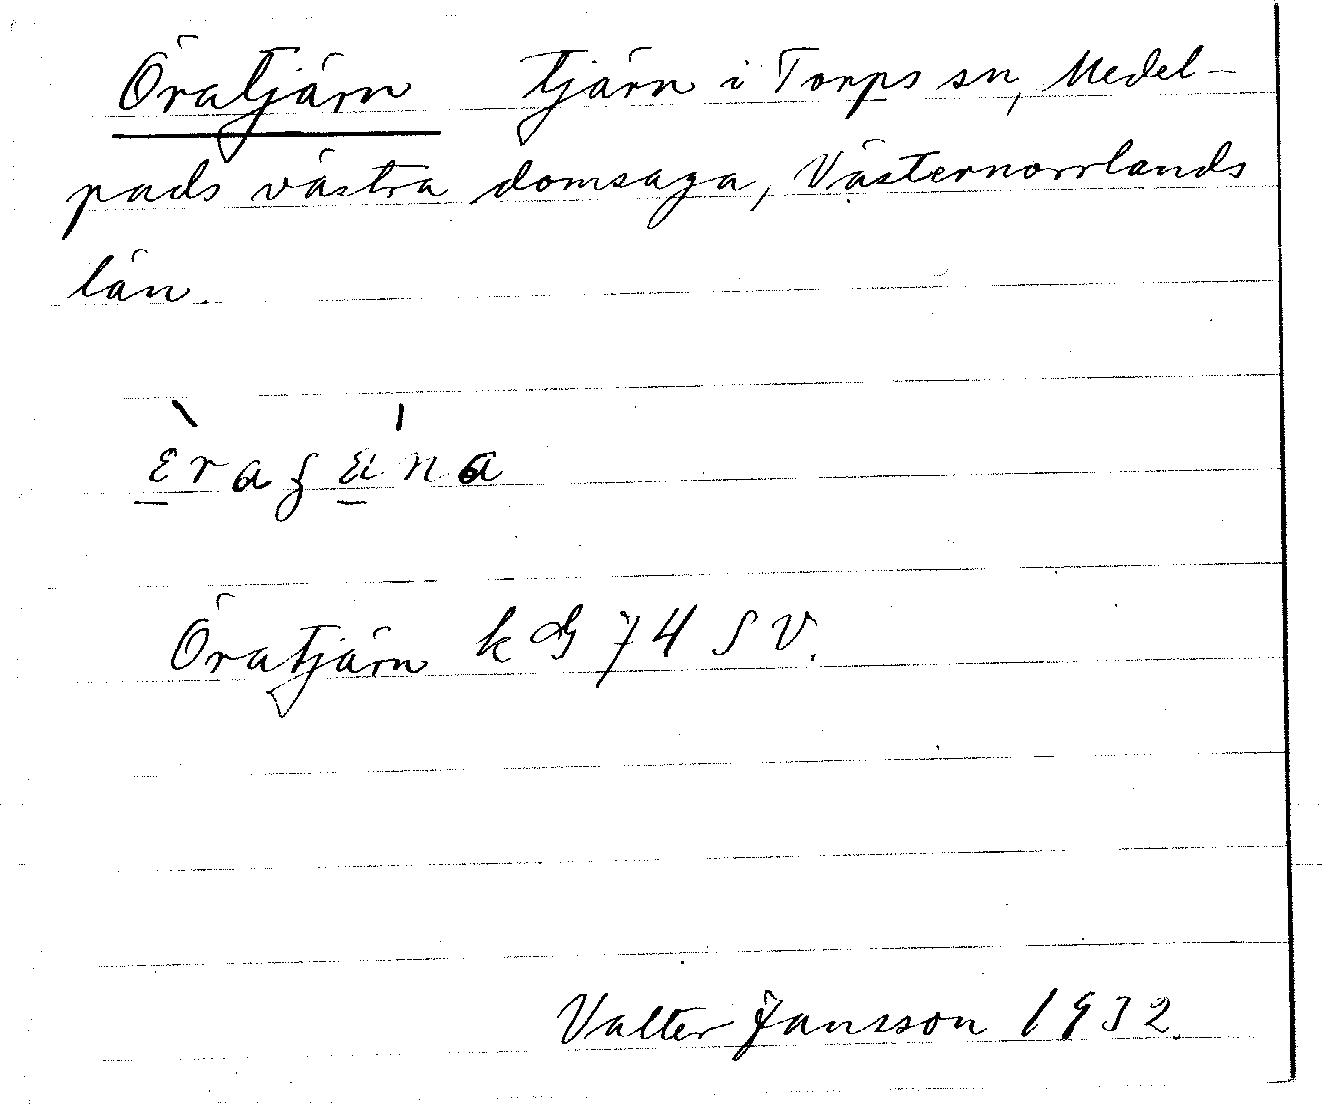 Öratjärn tjärn i Torps sn, Medel-
pads västra domsaga, Västernorrlands
län.
Öratjärn kbl 74 SV.
Valter Jansson 1932.